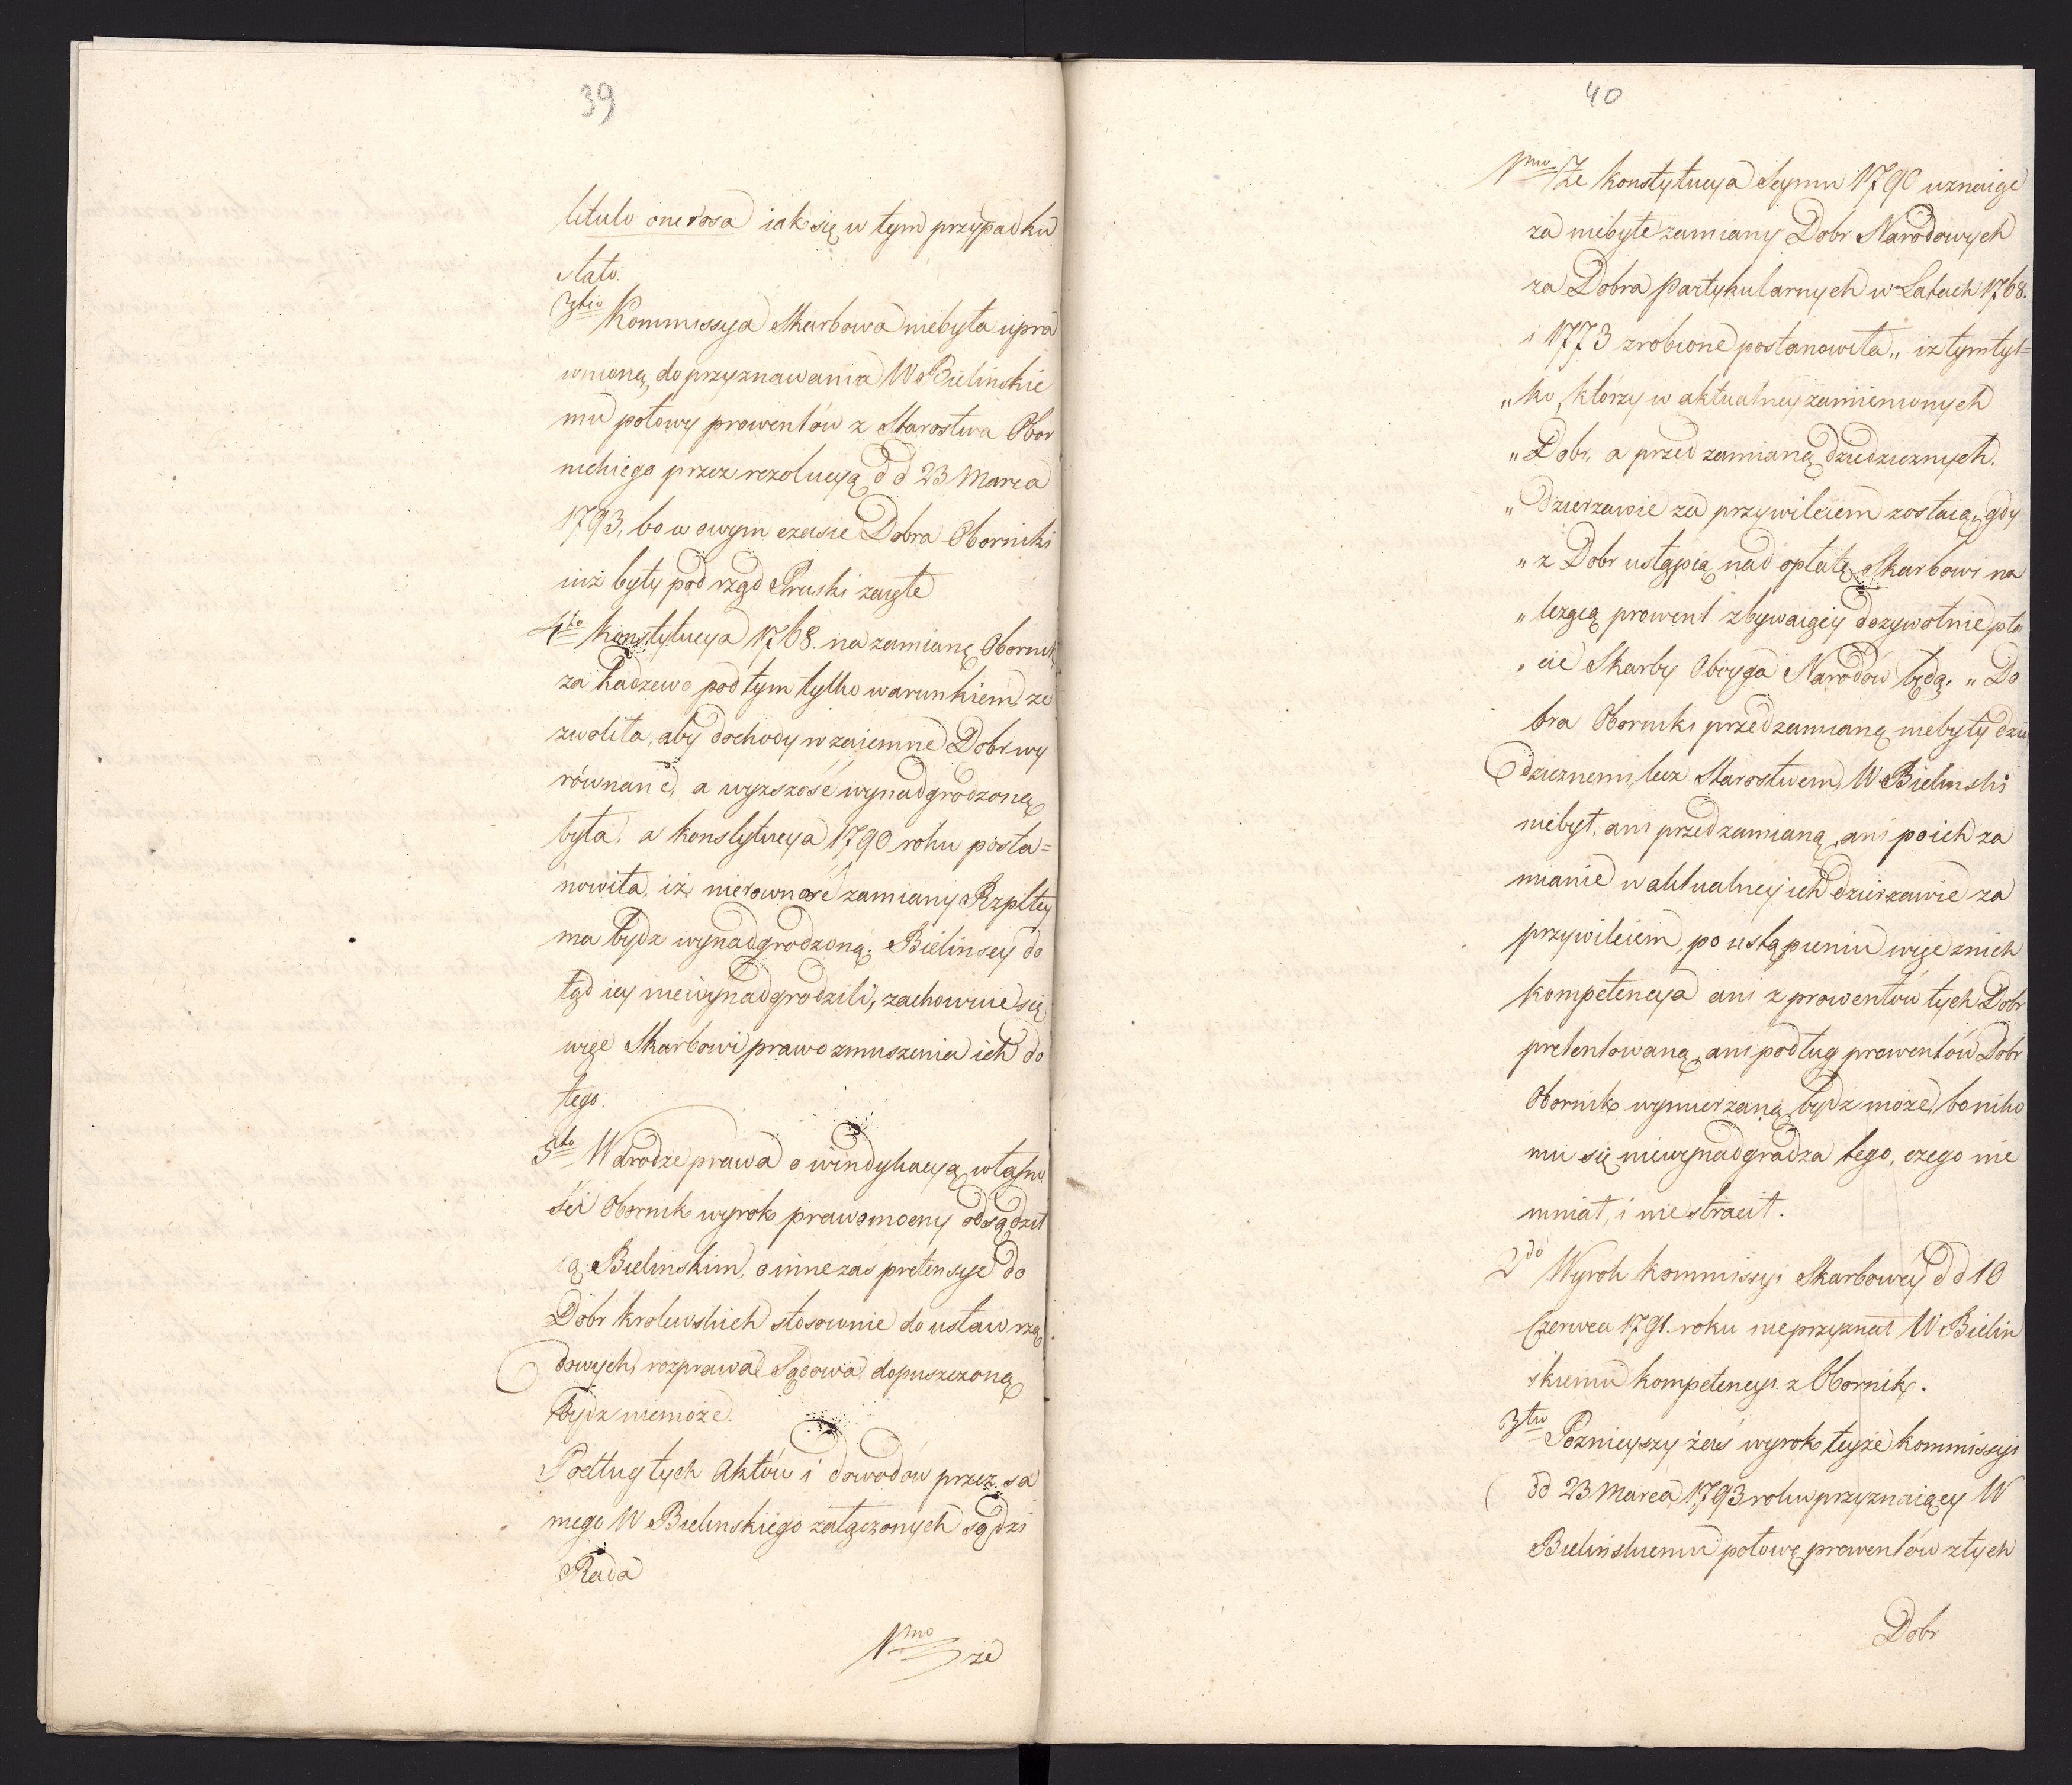 39
titulo onerosa iak się w tym przypadku
stało.
3tio Kommissya Skarbowa niebyła upra
wnioną do przyznawania W Bielinskie
mu połowy prowentów z Starostwa Obor
nickiego przez rezolucyą d d 23 Marca
1793, bo w owym czasie Dobra Oborniki
iuż były pod rząd Pruski zaięte
4to Konstytucya 1768. na zamianę Obornik
za Kadzewo pod tym tylko warunkiem ze
zwoliła, aby dochody wzaiemne Dobr wy
równane, a wyższość wynadgrodzoną
była, a konstytucya 1790 roku posta=
nowiła, iż nierownosć zamiany Rzpltey
ma bydz wynadgrodzoną. Bielinscy do
tąd iey niewynadgrodzili, zachowuie się
więc Skarbowi prawo zmuszenia ich do
tego.
5to W drodze prawa o windykacyą własno
ści Obornik wyrok prawomocny odsądził
ią Bielinskim, o inne zaś pretensye do
Dobr krolewskich stosownie do ustaw rzą
dowych, rozprawa Sądowa dopuszczoną
bydz niemoże.
Podług tych Aktów i dowodów przez sa
mego W Bielinskiego załączonych sądzi
Rada
1mo że
40
1mo Że Konstytucya Seymu 1790 uznaige
za niebyłe zamiany Dobr Narodowych
za Dobra Partykularnych w Latach 1768.
i 1773 zrobione postanowiła „ iż tym tyl=
„ ko, którzy w aktualney zamienionych
„ Dobr, a przed zamianą dziedzicznych,
„ dzierzawie za przywileiem zostaią, gdy
„ z Dobr ustąpią nad opłatę Skarbowi na
„ lezącą prowent zbywaiący dozywotnie pła
„ cić Skarby Oboyga Narodów będą. „ Do
bra Oborniki przed zamianą niebyły dzie
dzicznemi, lecz Starostwem, W Bielinski
niebył, ani przed zamianą, ani po ich za
mianie w aktualney ich dzierzawie za
przywileiem, po ustąpieniu więc z nich
kompetencya ani z prowentów tych Dobr
pretentowaną, ani podług prowentów Dobr
Obornik wymierzaną bydz może, bo niko
mu się niewynadgradza tego, czego nie
mniał, i nie stracił.
2do Wyrok Kommissyi Skarbowéy d d 10
Czerwca 1791. roku nieprzyznał W Bielin
skiemu kompetencyi z Obornik.
3tio Poznieyszy zaś wyrok teyże Kommissyi
dd 23 Marca 1793 roku przyznaiący W
Bielińskiemu połowę prowentów z tych
Dobr